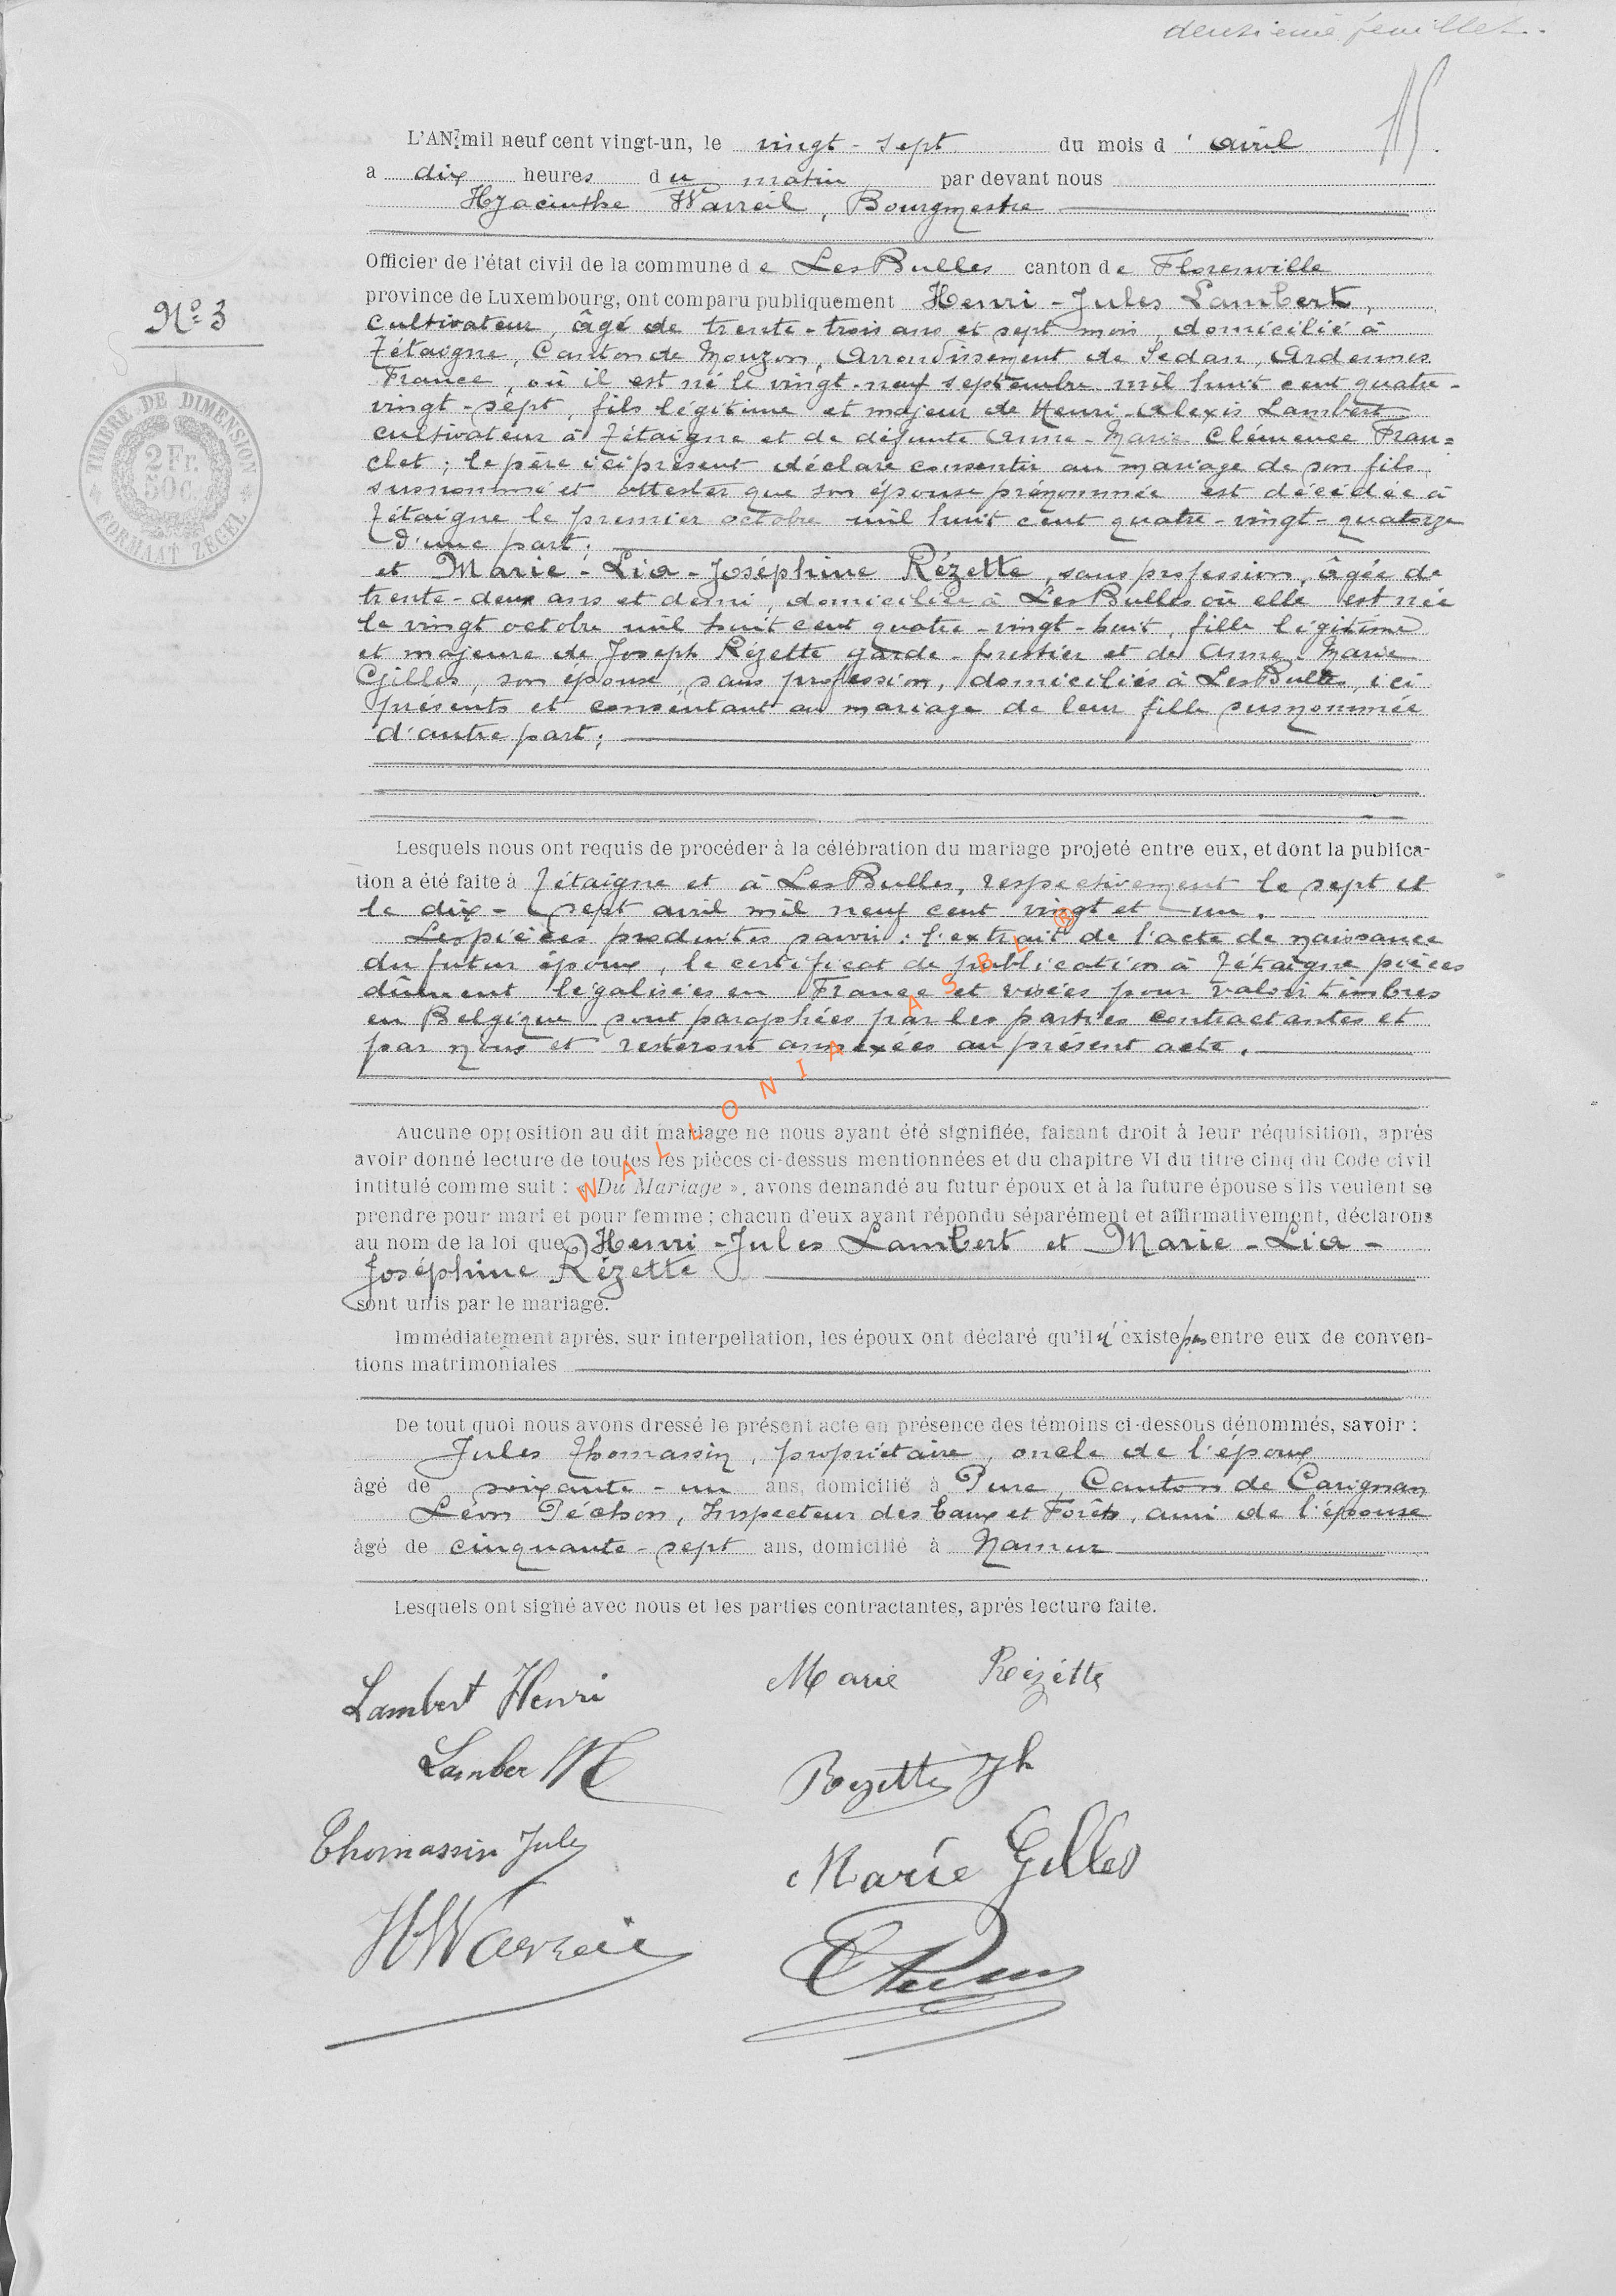 deuxième feuillet.
15
L'AN mil neuf cent vingt-un, le vingt-sept du mois d'avril
a dix heures du matin par devant nous
Hyacinthe Warreil, Bourgmestre
Officier de l'état civil de la commune de Les Bulles canton de Florenville
province de Luxembourg, ont comparu publiquement Henri-Jules Lambert,
N° 3
cultivateur, âgé de trente-trois ans et sept mois, domicilié à
Tétaigne, Canton de Mouzon, Arrondissement de Sedan, Ardennes
France, où il est né le vingt-neuf septembre mil huit cent quatre-
vingt-sept, fils légitime et majeur de Henri-Alexis Lambert
cultivateur à Tétaigne et de défunte Anne-Marie Clémence Fran=
chet; le père ici présent déclare consentir au mariage de son fils
susnommé et attester que son épouse prénommée est décédée à
Tétaigne le premier octobre mil huit cent quatre-vingt-quatorze
d'une part;
TIMBRE DE DIMENSION
2 Fr.
50 C.
FORMAAT ZEGEL
et Marie-Lia-Joséphine Rézette, sans profession, âgée de
trente-deux ans et demi, domiciliée à Les Bulles où elle est née
le vingt octobre mil huit cent quatre-vingt-huit, fille légitime
et majeure de Joseph Rézette garde-forestier et de Anne-Marie
Gilles, son épouse, sans profession, domiciliés à Les Bulles, ici
présents et consentant au mariage de leur fille susnommée
d'autre part;
Lesquels nous ont requis de procéder à la célébration du mariage projeté entre eux, et dont la publica-
tion a été faite à Tétaigne et à Les Bulles, respectivement le sept et
le dix-sept avril mil neuf cent vingt et un.
Les pièces produites savoir: l'extrait de l'acte de naissance
du futur époux, le certificat de publication à Tétaigne pièces
dûment légalisées en France et visées pour valoir timbres
en Belgique sont paraphées par les parties contractantes et
par nous et resteront annexées au présent acte.
WALLONIA ASBL ®
Aucune opposition au dit mariage ne nous ayant été signifiée, faisant droit à leur réquisition, après
avoir donné lecture de toutes les pièces ci-dessus mentionnées et du chapitre VI du titre cinq du Code civil
intitulé comme suit : « Du Mariage », avons demandé au futur époux et à la future épouse s'ils veulent se
prendre pour mari et pour femme ; chacun d'eux ayant répondu séparément et affirmativement, déclarons
au nom de la loi que Henri-Jules Lambert et Marie-Lia-
Joséphine Rézette
sont unis par le mariage.
Immédiatement après, sur interpellation, les époux ont déclaré qu'il n'existe pas entre eux de conven-
tions matrimoniales
De tout quoi nous avons dressé le présent acte en présence des témoins ci-dessous dénommés, savoir :
Jules Thomassin, propriétaire, oncle de l'époux
âgé de soixante-un ans, domicilié à Pure, Canton de Carignan
Léon Péchon, Inspecteur des Eaux et Forêts, ami de l'épouse
âgé de cinquante-sept ans, domicilié à Namur
Lesquels ont signé avec nous et les parties contractantes, après lecture faite.
Lambert Henri Marie Rézette
Lamber Rezette Jh
Thomassin Jules Marie Gilles
H Warreil